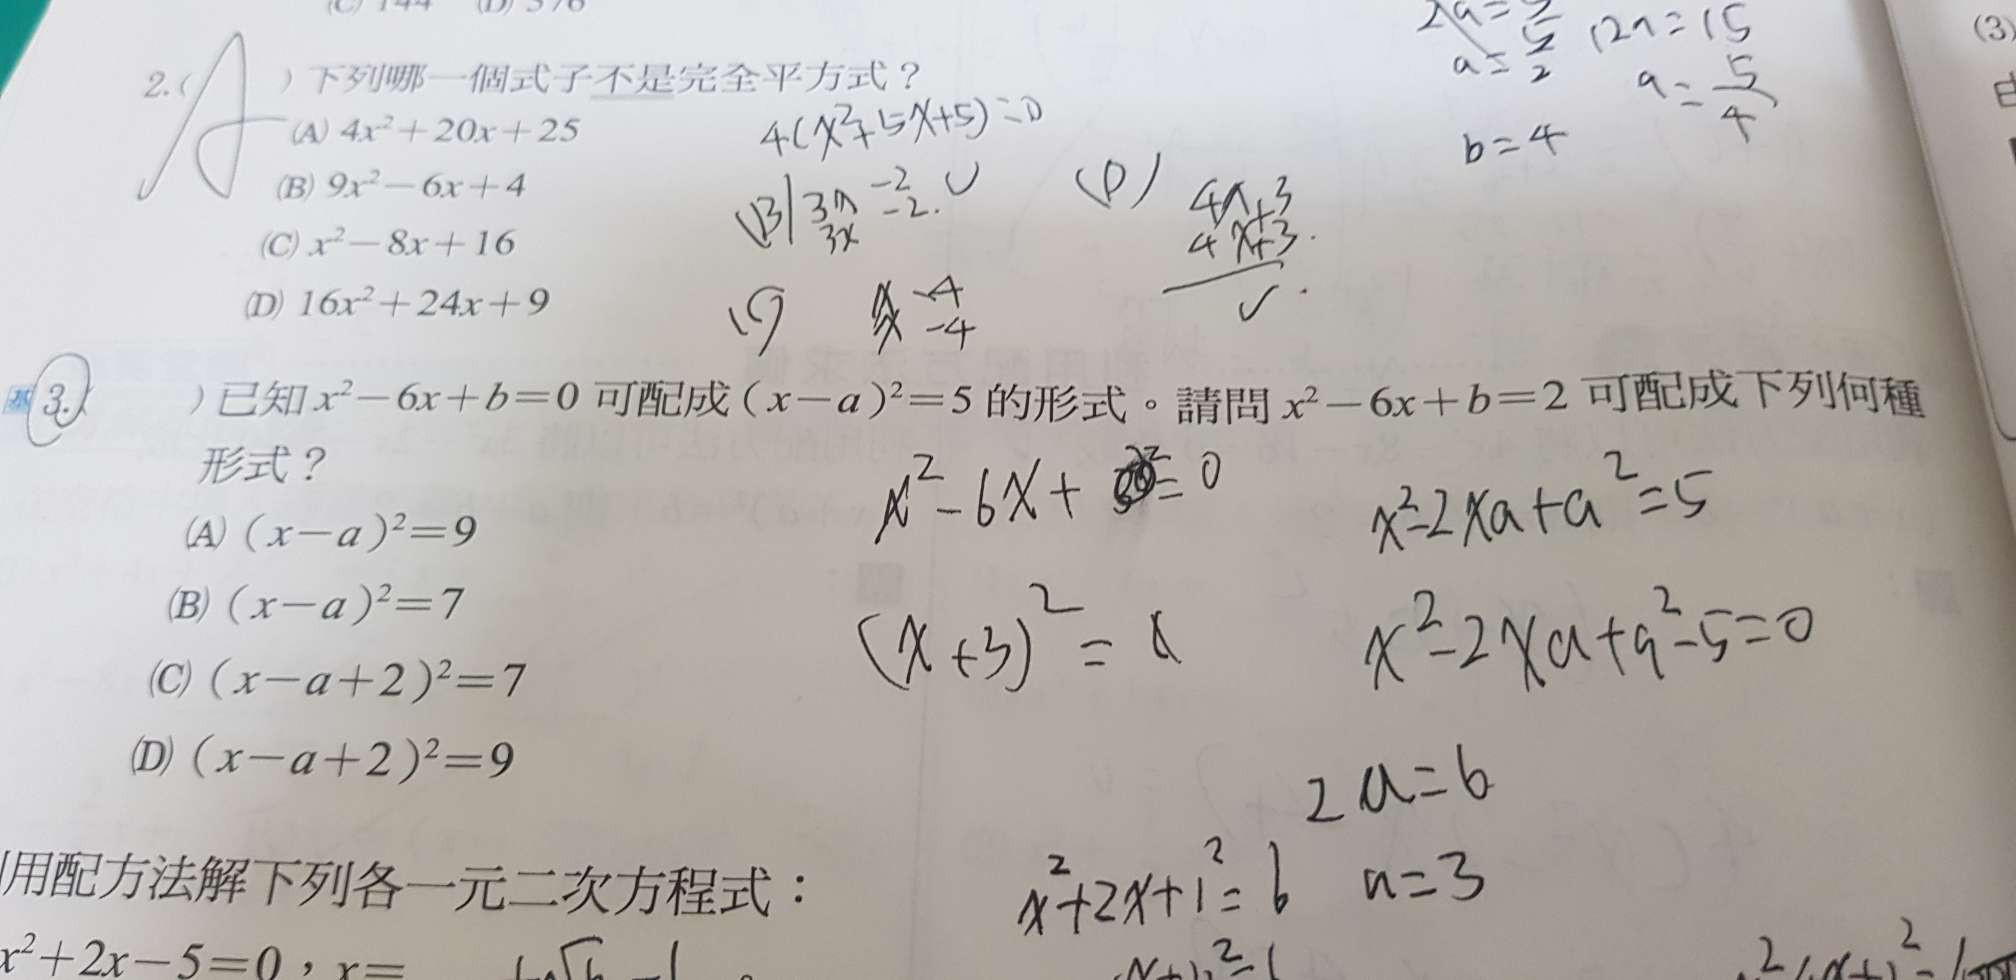 (C) 144 (D) 576
2.( A ) 下列哪一個式子不是完全平方式？
(A) 4x²＋20x＋25
(B) 9x²－6x＋4
(C) x²－8x＋16
(D) 16x²＋24x＋9
4(x²+5x+5)=0
(B) 3x -2 ✓
3x -2.
(C) x -4
x -4
(D) 4x+3
4x+3.
✓.
a=5/2
12a=15
a=5/4
b=4
(3)
基 3.( ) 已知 x²－6x＋b＝0 可配成 ( x－a )²＝5 的形式。請問 x²－6x＋b＝2 可配成下列何種
形式？
(A) ( x－a )²＝9
(B) ( x－a )²＝7
(C) ( x－a＋2 )²＝7
(D) ( x－a＋2 )²＝9
(x+3)²=
x²-2xa+a²=5
x²-2xa+a²-5=0
2a=6
a=3
用配方法解下列各一元二次方程式：
x²＋2x－5＝0，x＝
x²+2x+1²=6